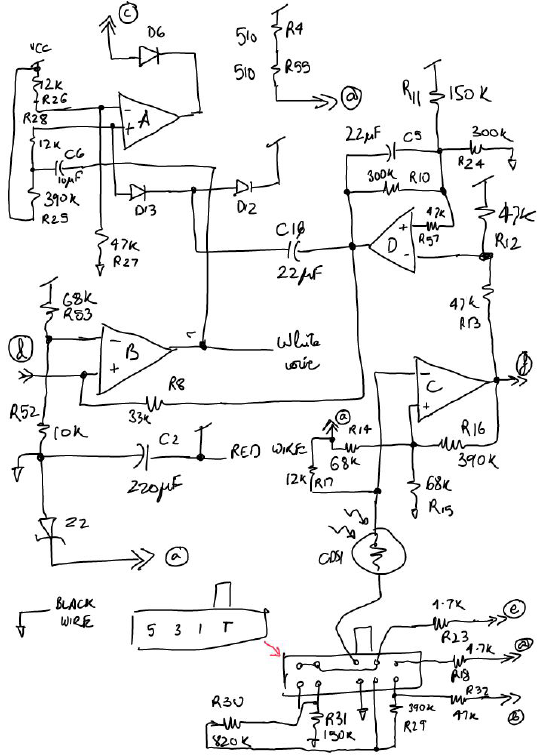 C
D6
510
R4
VCC
510
R55
12K
R26
a
R11
150K
R28
A
12K
22µF
C5
300K
R24
C6
10µF
300K
R10
390K
R25
D13
D12
47K
R57
47K
R12
C18
D
47K
R27
22µF
68K
R53
47K
R13
B
White
wire
C
R8
R52
33K
a
R14
R16
10K
C2
RED WIRE
68K
390K
220µF
12K
R17
68K
R15
Z2
CDS1
a
BLACK
WIRE
4.7K
e
5 3 1 T
R23
4.7K
R18
R30
R31
390K
R29
R32
47K
820K
150K